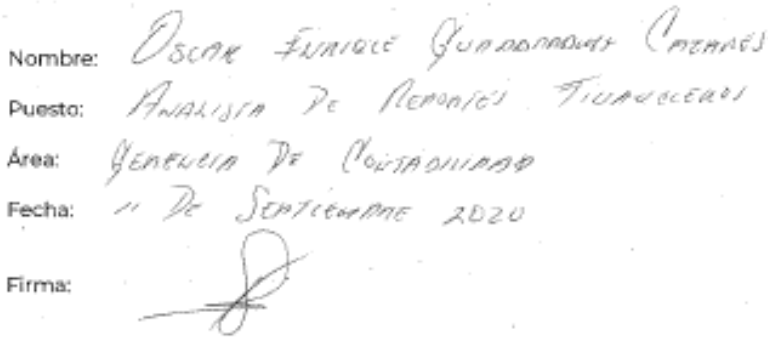 Nombre: Oscar Enrique Cazares
Puesto: Analista De Reportes Financieros
Área: Gerencia De Contabilidad
Fecha: 11 De Septiembre 2020
Firma: